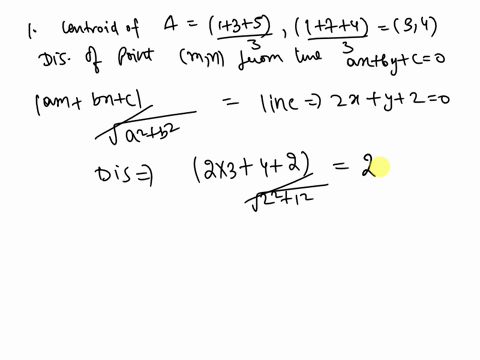 1. Centroid of A = (1+3+5)/3 , (1+7+4)/3 = (3,4)
Dis. of Point (m,n) from line ax+by+c=0
|am+bn+c|/√a²+b² = line ⇒ 2x+y+2=0
Dis ⇒ (2x3+4+2)/√2²+12 = 2